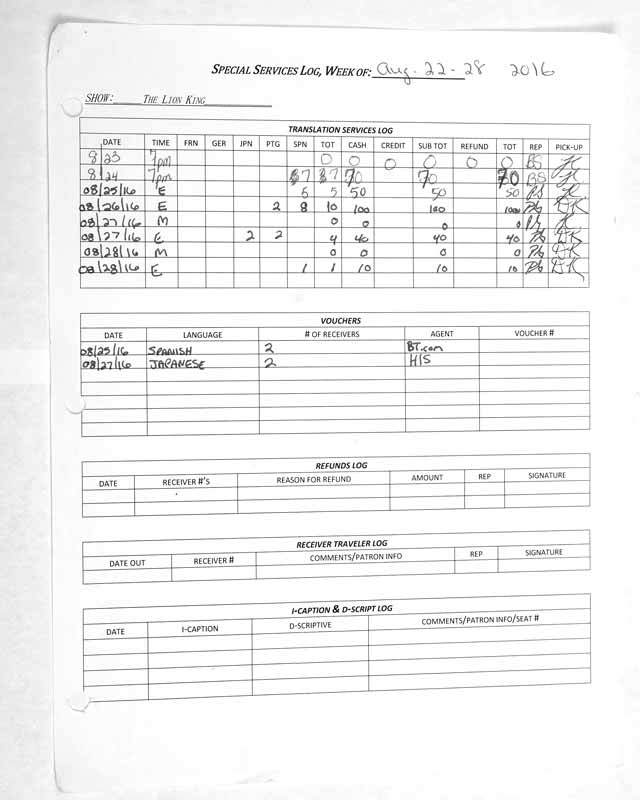 SPECIAL SERVICES LOG, WEEK OF: Aug. 22-28 2016
SHOW: THE LION KING
TRANSLATION SERVICES LOG
DATE TIME FRN GER JPN PTG SPN TOT CASH CREDIT SUB TOT REFUND TOT REP PICK-UP
8/23 7pm 0 0 0 0 0 0 BS
8/24 7pm 7 7 70 70 70 BS
08/25/16 E 5 5 50 50 50
08/26/16 E 2 8 10 100 100 100 DK
08/27/16 M 0 0 0 0
08/27/16 E 2 2 4 40 40 40 DK
08/28/16 M 0 0 0 0 DK
08/28/16 E 1 1 10 10 10 DK
VOUCHERS
DATE LANGUAGE # OF RECEIVERS AGENT VOUCHER #
08/25/16 SPANISH 2 BT.com
08/27/16 JAPANESE 2 HIS
REFUNDS LOG
DATE RECEIVER #'S REASON FOR REFUND AMOUNT REP SIGNATURE
RECEIVER TRAVELER LOG
DATE OUT RECEIVER # COMMENTS/PATRON INFO REP SIGNATURE
I-CAPTION & D-SCRIPT LOG
DATE I-CAPTION D-SCRIPTIVE COMMENTS/PATRON INFO/SEAT #